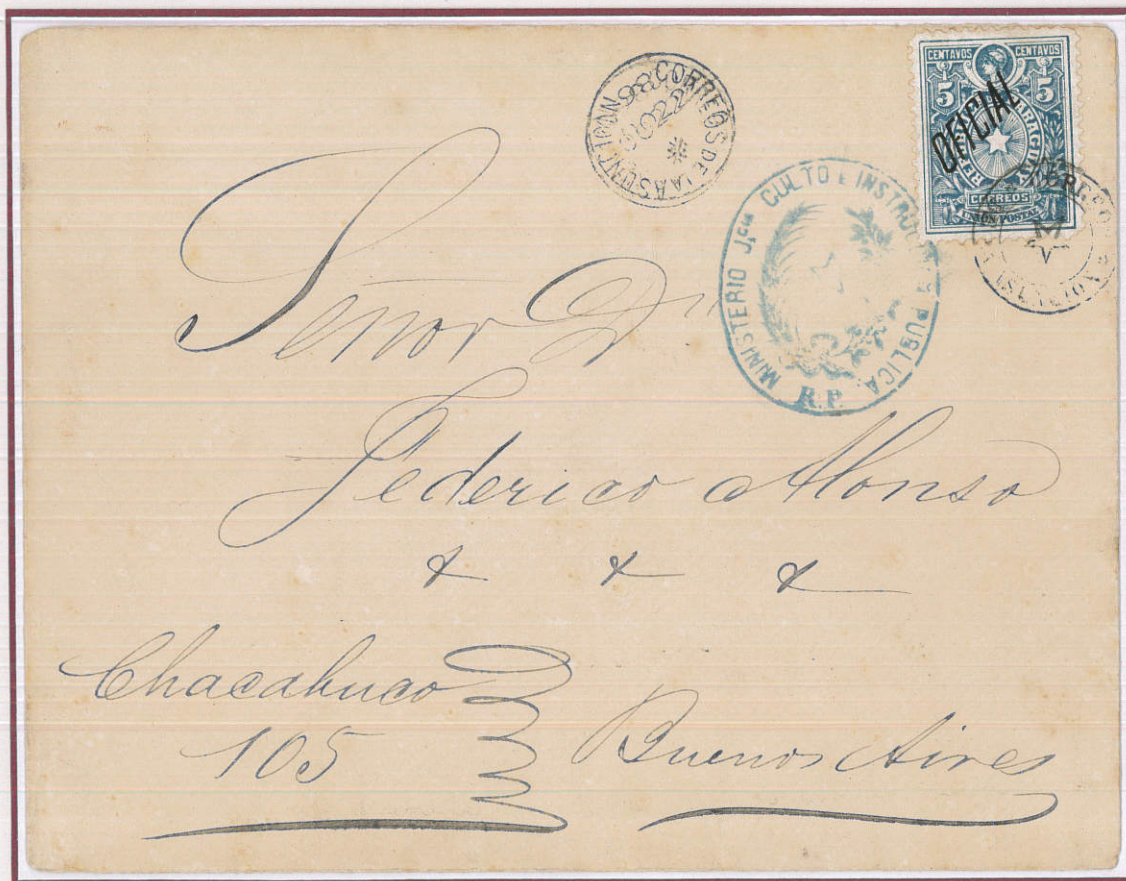 CORREOS DE LA ASUNCION
22
CENTAVOS CENTAVOS
5 5
OFICIAL
CORREOS
UNION POSTAL
MINISTERIO J.cia CULTO E INSTRUC PUBLICA.
R.P.
Señor Dr
Federico Alonso
Chacabuco
105
Buenos Aires